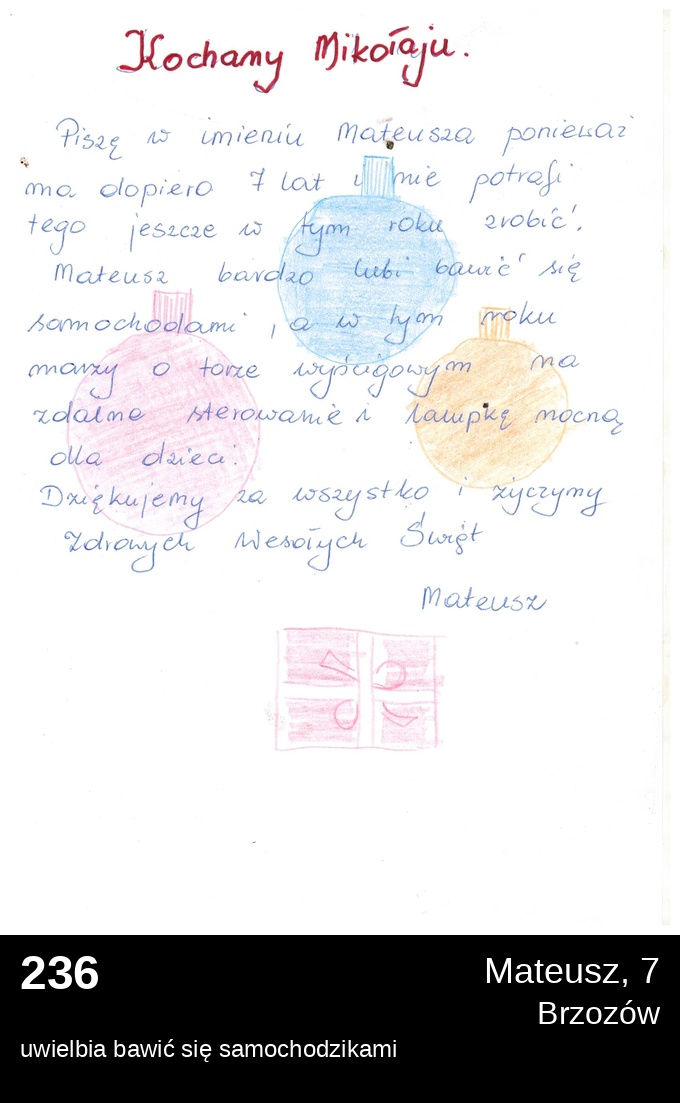 Kochamy Mikołaju.
Piszę w imieniu Mateusza ponieważ
ma dopiero 7 lat i nie potrafi
tego jeszcze w tym roku zrobić.
Mateusz bardzo lubi bawić się
samochodami, a w tym roku
marzy o torze wyścigowym na
zdalne sterowanie i lampkę nocną
dla dzieci.
Dziękujemy za wszystko i życzymy
Zdrowych Wesołych Świąt
Mateusz
236
Mateusz, 7
Brzozów
uwielbia bawić się samochodzikami